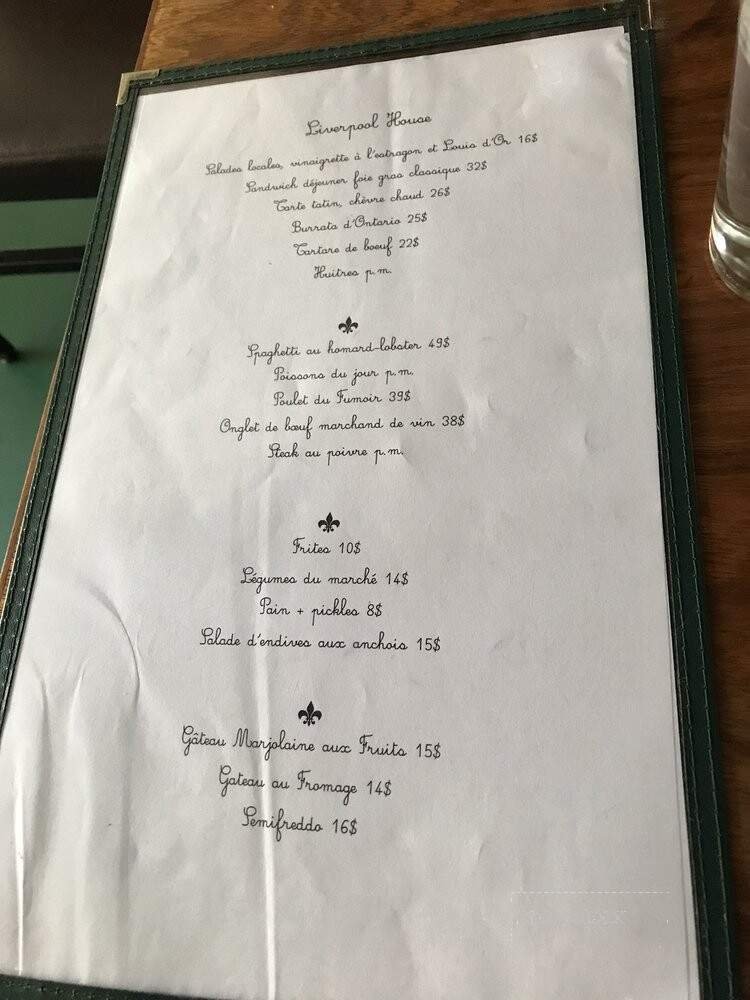 Liverpool House
Salades locales, vinaigrette à l'estragon et Louis d'Or 16$
Sandwich déjeuner foie gras classique 32$
Tarte tatin, chèvre chaud 26$
Burrata d'Ontario 25$
Tartare de boeuf 22$
Huîtres p.m.
Spaghetti au homard-lobster 49$
Poissons du jour p.m.
Poulet du Fumoir 39$
Onglet de bœuf marchand de vin 38$
Steak au poivre p.m.
Frites 10$
Légumes du marché 14$
Pain + pickles 8$
Salade d'endives aux anchois 15$
Gâteau Marjolaine aux Fruits 15$
Gateau au Fromage 14$
Semifreddo 16$